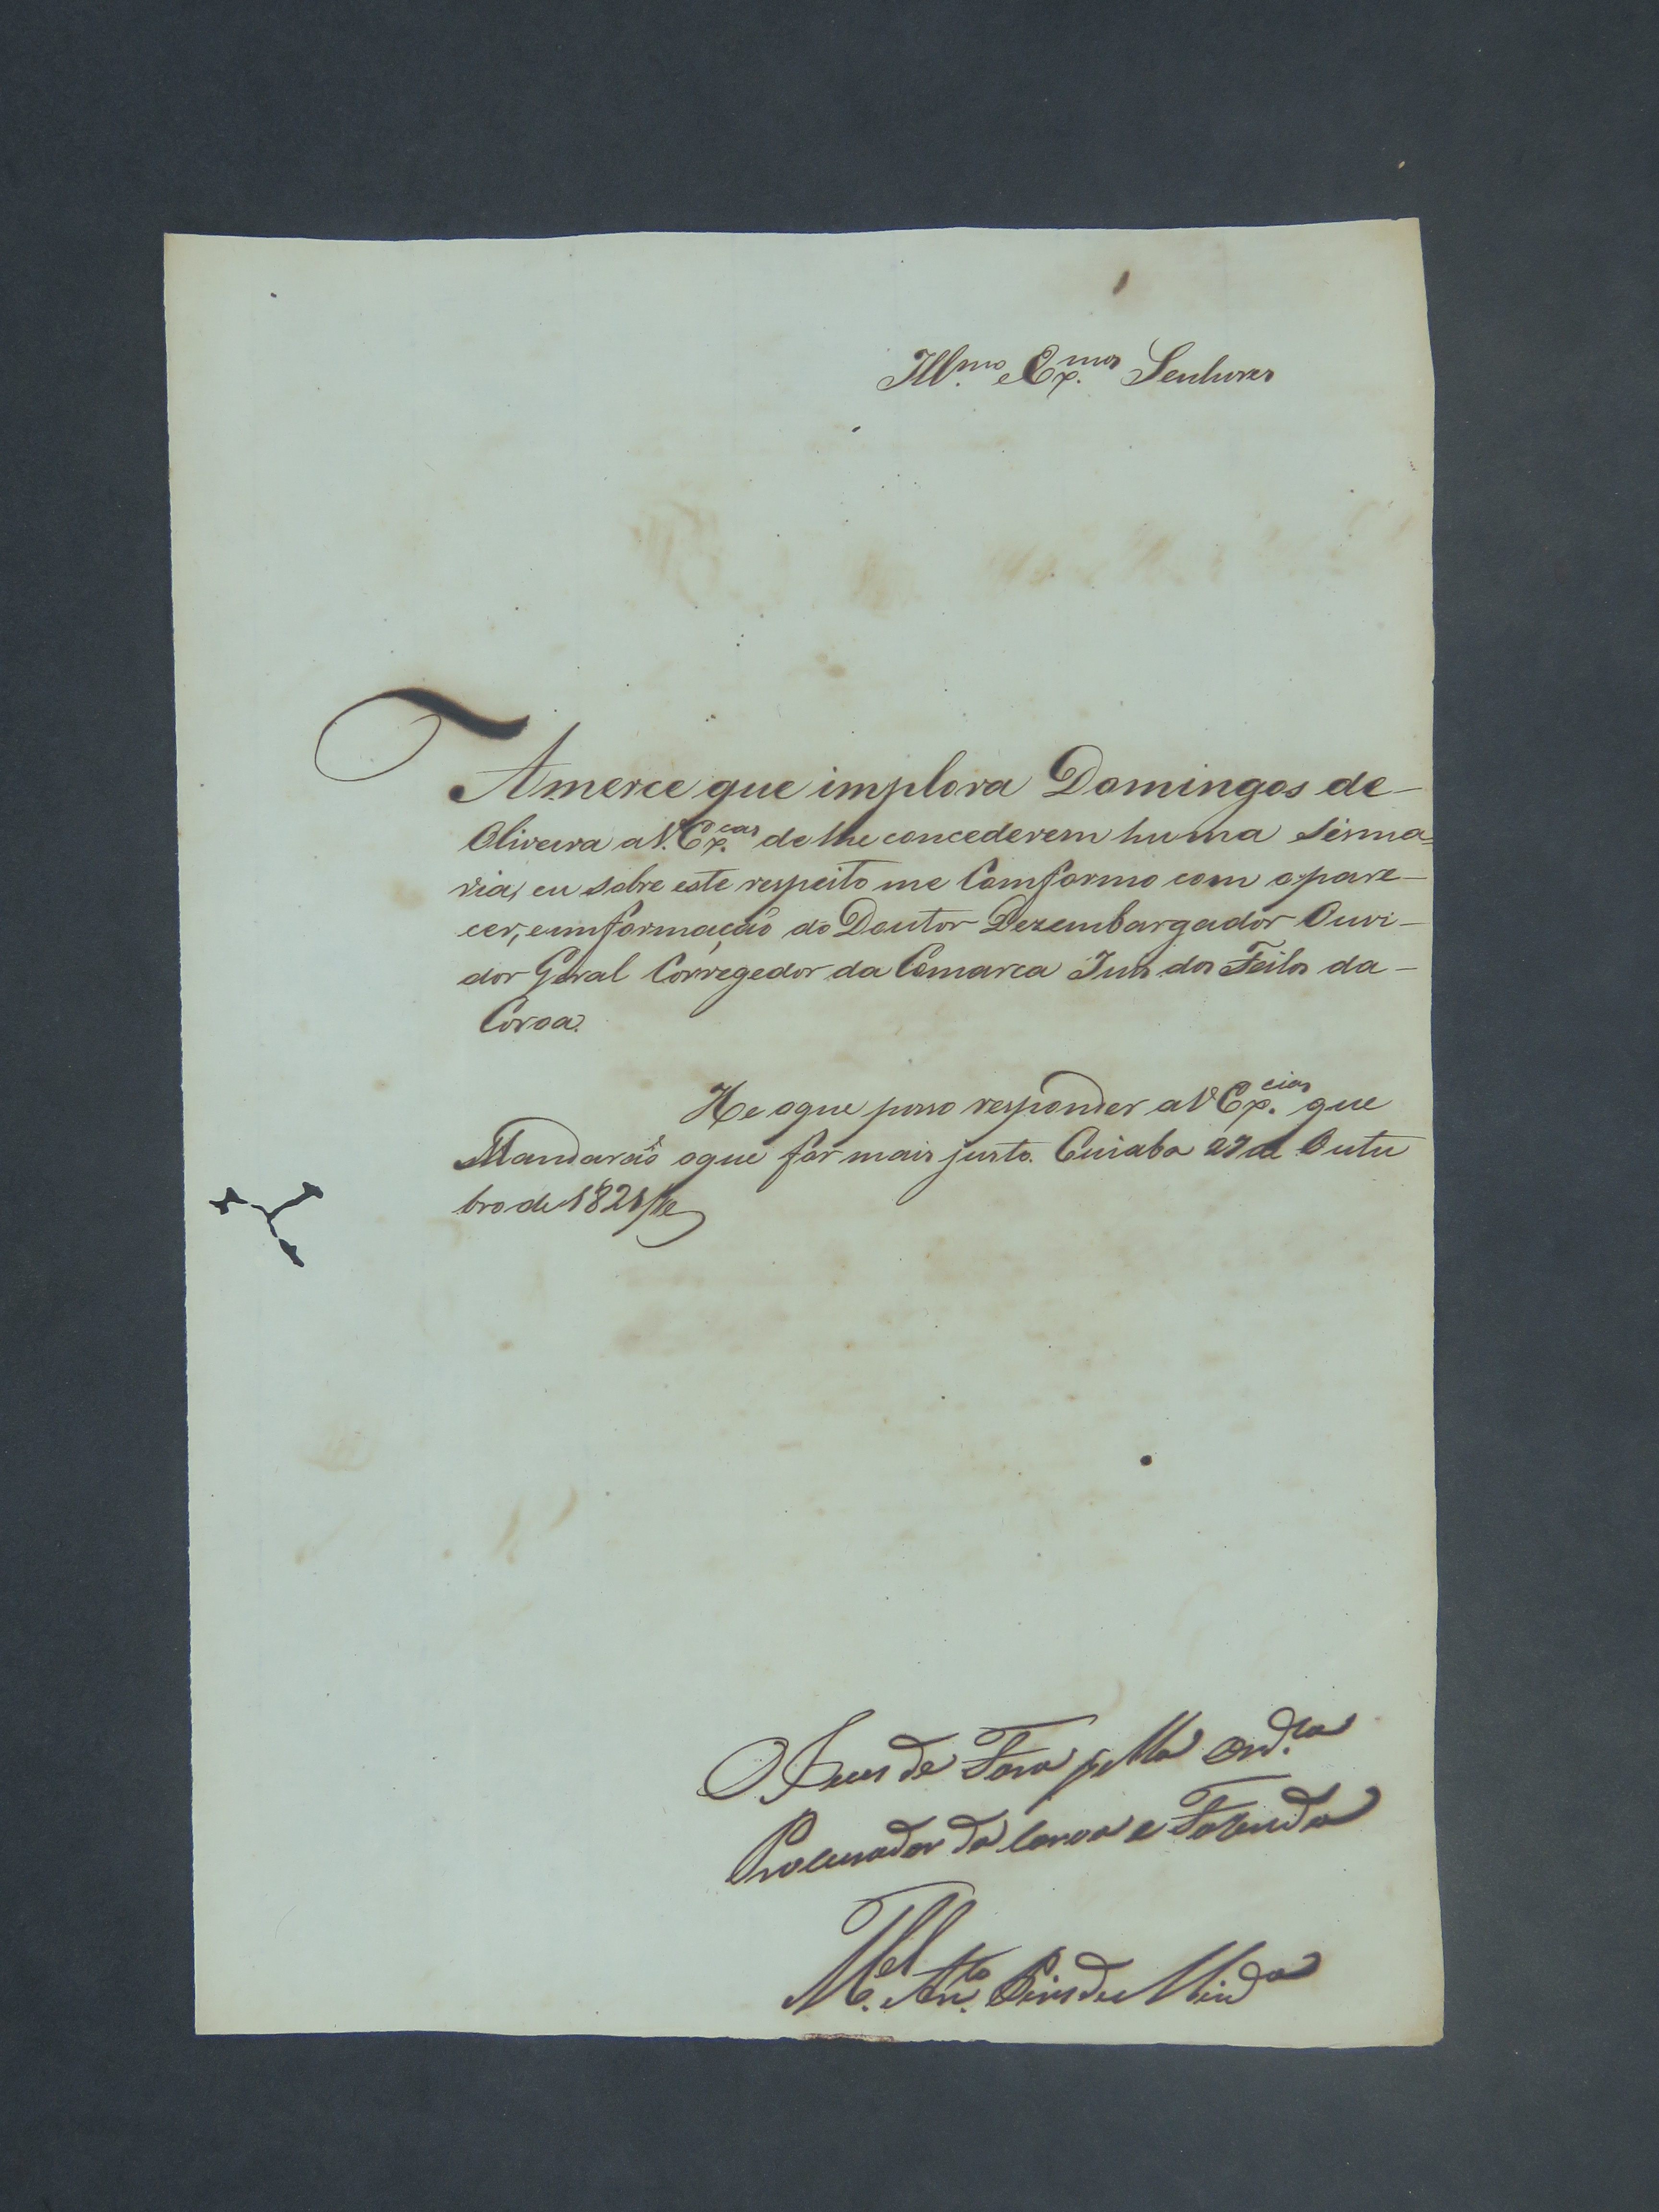 Ill.mo e Ex.mos Senhores
A merce que implora Domingos de-
Oliveira a V. Ex.cas de lhe concederem huma sesma=
ria, eu sobre este respeito me Comformo com o pare-
cer, e imformação do Doutor Dezembargador Ouvi-
dor Geral Corregedor da Comarca Juis dos Feitos da-
Coroa.
He oque posso responder a V Ex.cias que
Mandarão oque for mais justo. Cuiaba 27 de Outu
bro de 1821
O Juis de Fora pella Ord.ca
Procurador da Coroa e Fazenda
M.el Ant.o Pires de Mir.da